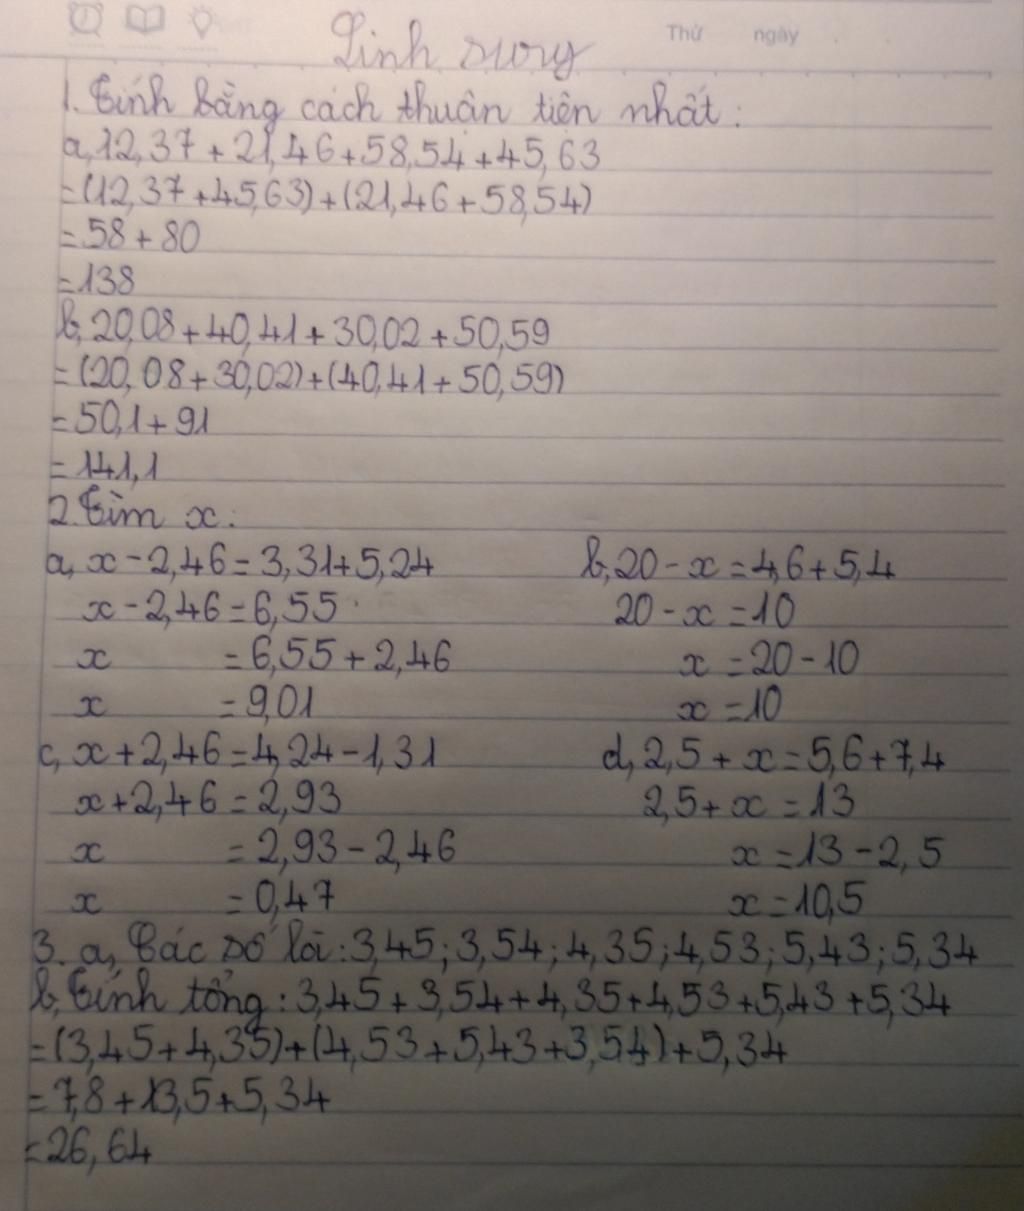 Thứ ngày
Linh svory
1. Tính bằng cách thuận tiện nhất:
a, 12,37 + 21,46 + 58,54 + 45,63
= (12,37 + 45,63) + (21,46 + 58,54)
= 58 + 80
= 138
b, 20,08 + 40,41 + 30,02 + 50,59
= (20,08 + 30,02) + (40,41 + 50,59)
= 50,1 + 91
= 141,1
2. Tìm x:
a, x - 2,46 = 3,31 + 5,24 b, 20 - x = 4,6 + 5,4
x - 2,46 = 6,55 20 - x = 10
x = 6,55 + 2,46 x = 20 - 10
x = 9,01 x = 10
c, x + 2,46 = 4,24 - 1,31 d, 2,5 + x = 5,6 + 7,4
x + 2,46 = 2,93 2,5 + x = 13
x = 2,93 - 2,46 x = 13 - 2,5
x = 0,47 x = 10,5
3. a, Các số là: 3,45; 3,54; 4,35; 4,53; 5,43; 5,34
b, Tính tổng: 3,45 + 3,54 + 4,35 + 4,53 + 5,43 + 5,34
= (3,45 + 4,35) + (4,53 + 5,43 + 3,54) + 5,34
= 7,8 + 13,5 + 5,34
= 26,64